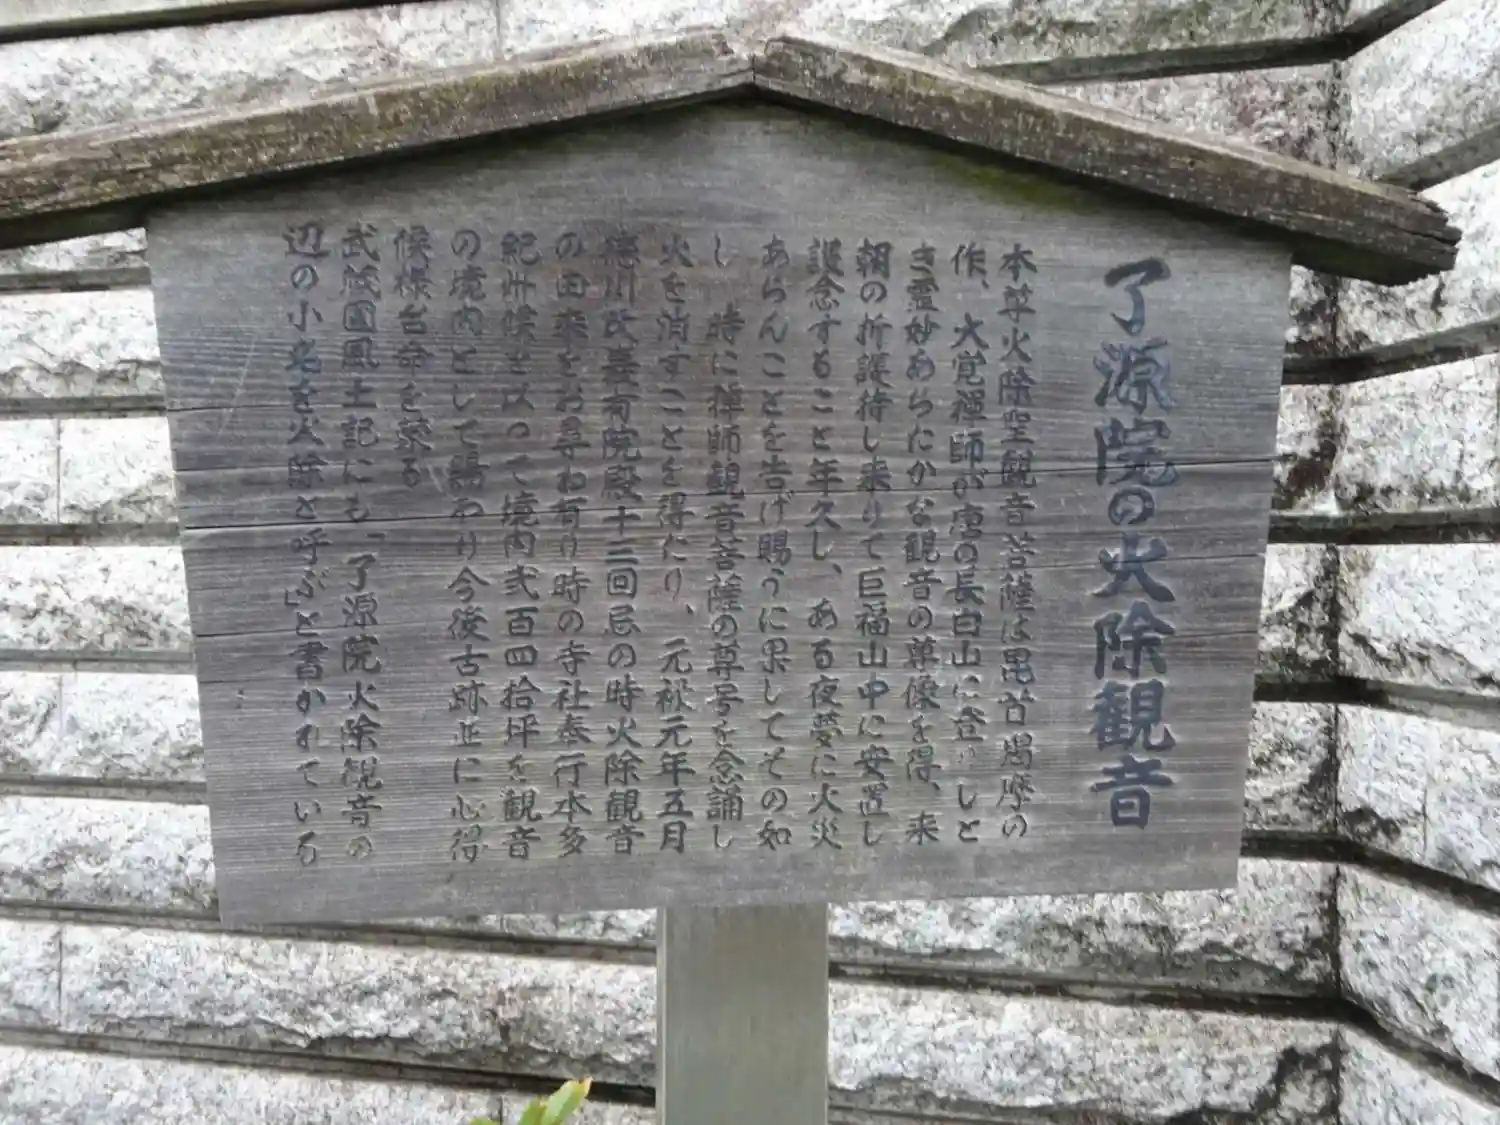 了源院の火除観音
本尊火除聖観音菩薩は毘首羯摩の
作、大覚禅師が唐の長白山に登りしと
き霊妙あらたかな観音の尊像を得、来
朝の折護待し来りて巨福山中に安置し
護念すること年久し、ある夜夢に火災
あらんことを告げ賜うに果してその如
し 時に禅師観音菩薩の尊号を念誦し
火を消すことを得たり、元禄元年五月
徳川家 有院殿十三回忌の時火除観音
の由来をお尋ね有り時の寺社奉行本多
紀州候を以って境内弐百四拾坪を観音
の境内として賜わり今後古跡並に心得
候様台命を蒙る
武蔵國風土記にも「了源院火除観音の
辺の小名を火除と呼ぶ」と書かれている